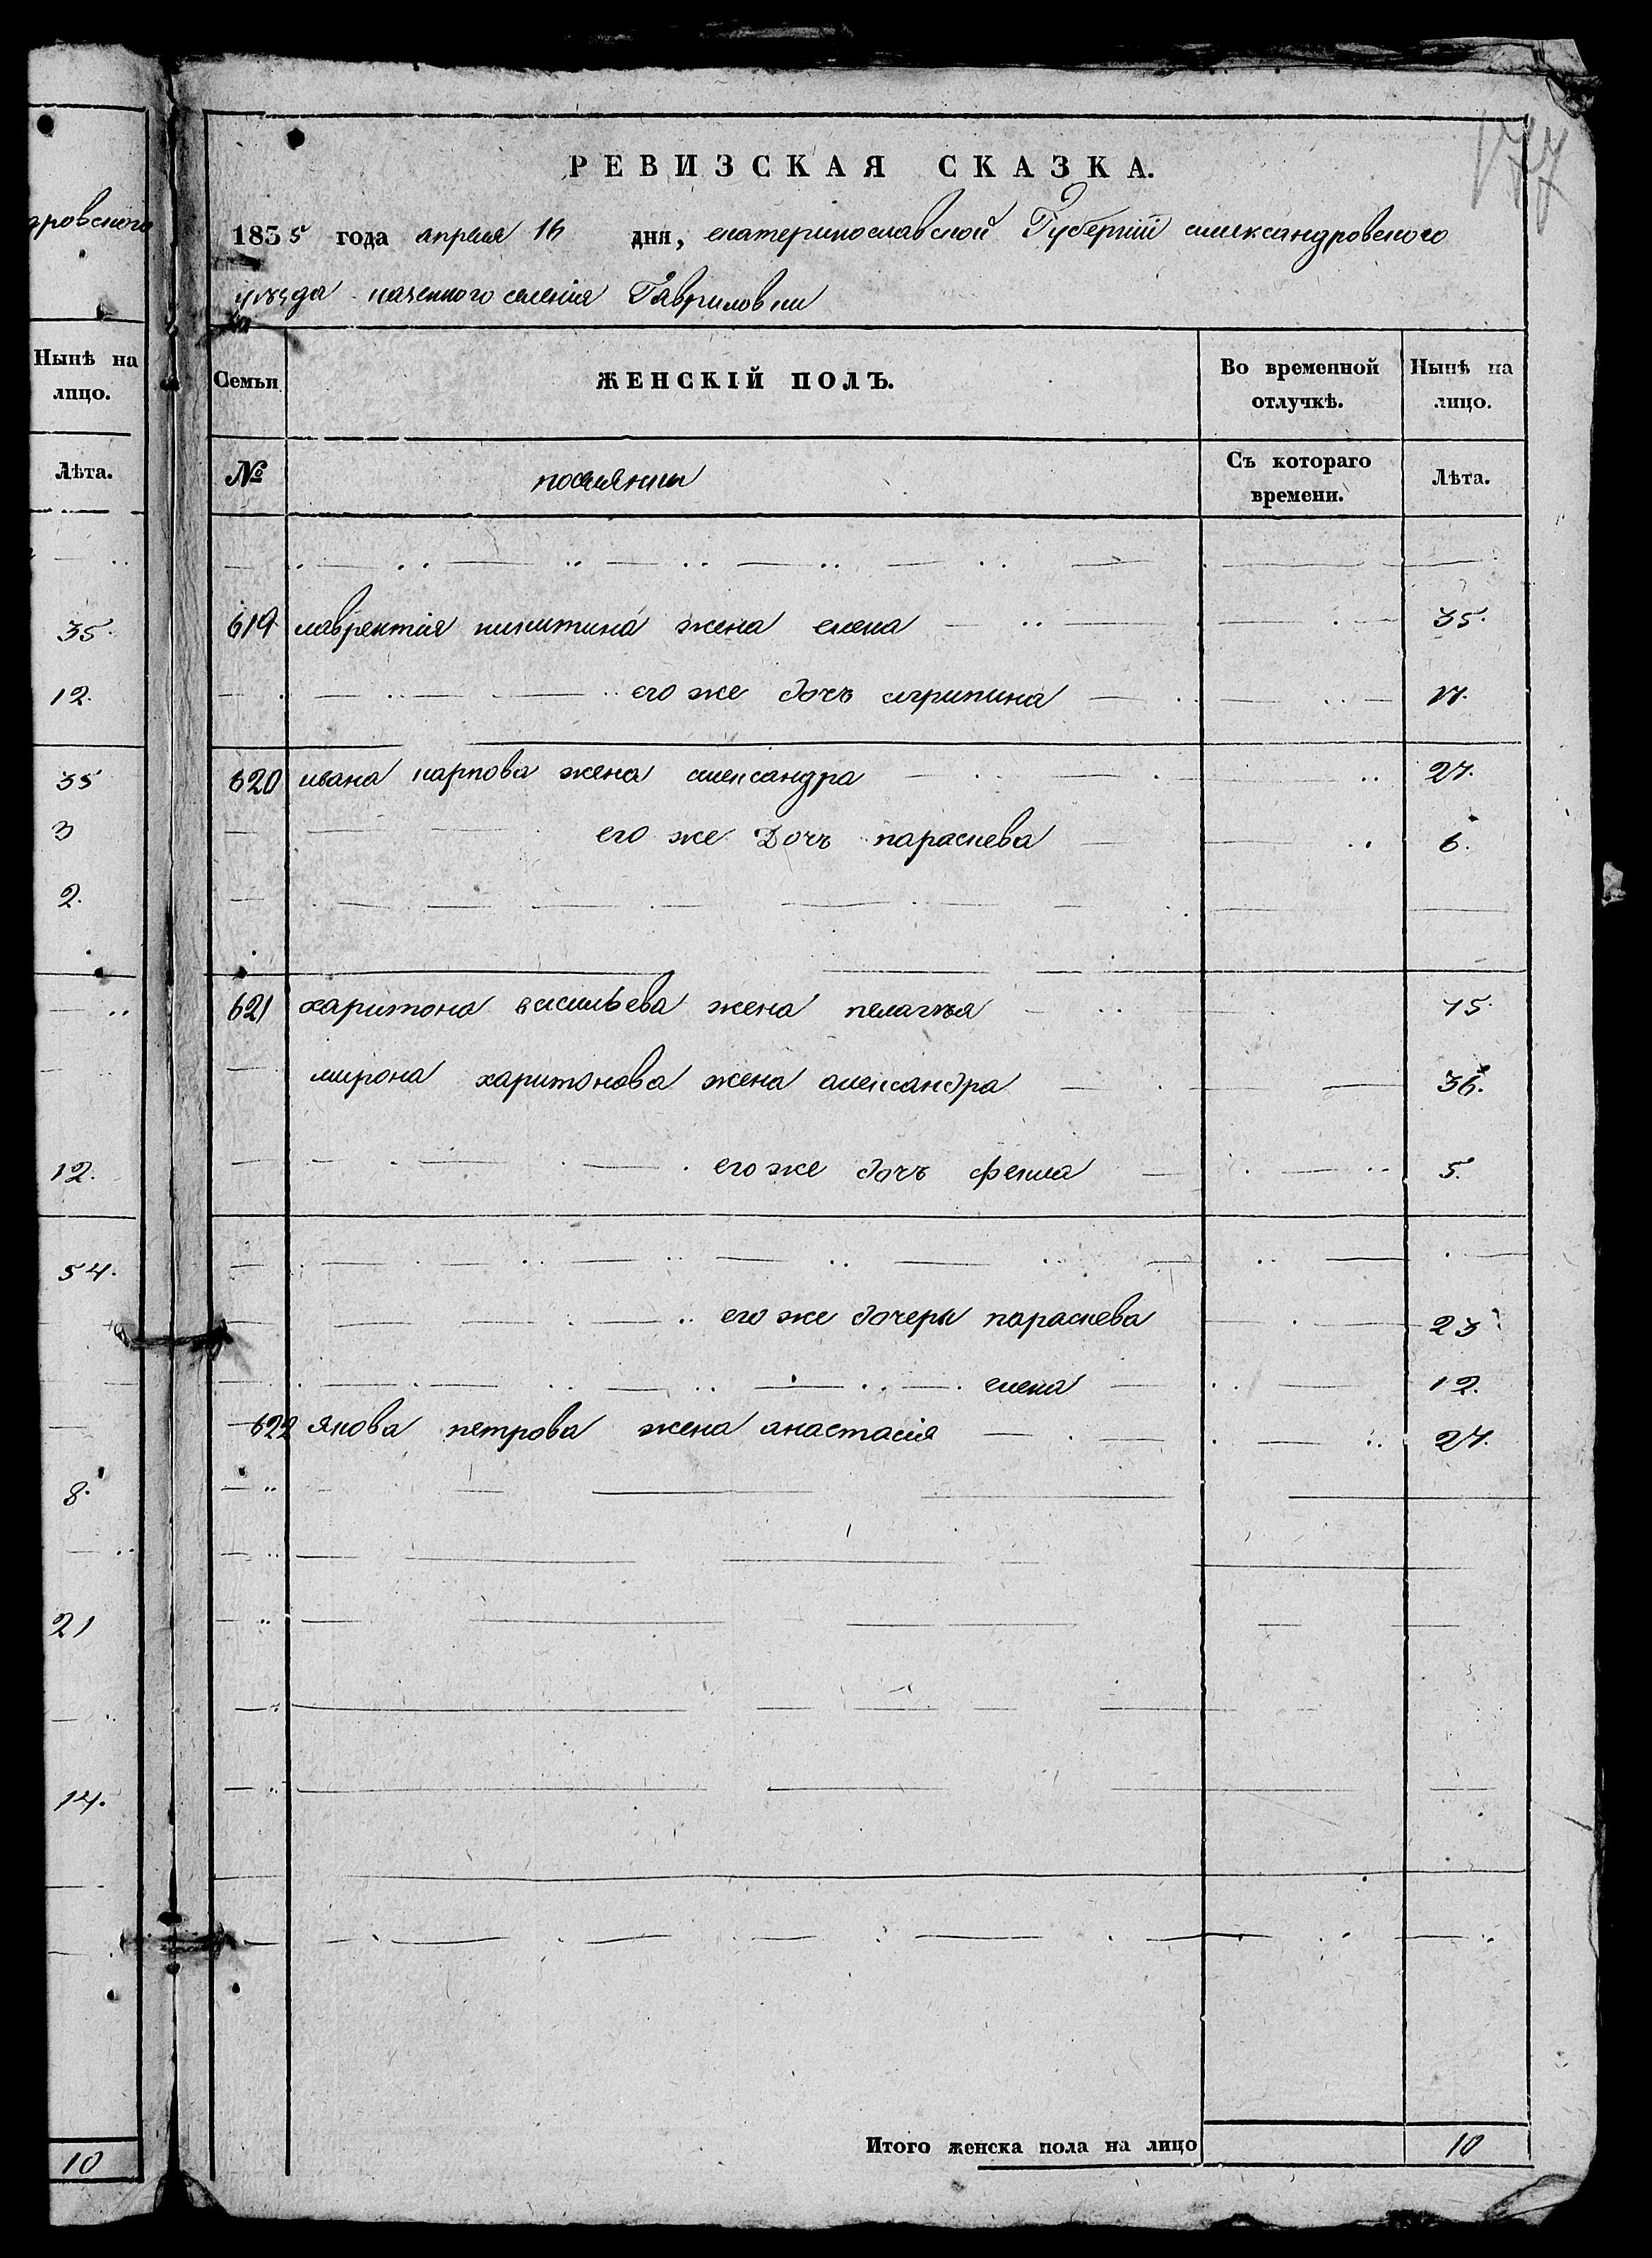 дровского
Нынѣ на
лицо.
Лѣта.
35.
12.
35
3
2.
12.
54.
8.
21
14.
10
177
РЕВИЗСКАЯ СКАЗКА.
1835 года апреля 16 дня, екатеринославской Губерніи александровского
уезда казенного селенія Гавриловки
Семьи
ЖЕНСКІЙ ПОЛЪ.
Во временной отлучкѣ.
Нынѣ на лицо.
№
поселянки
Съ котораго времени.
Лѣта.
619 лаврентія никитина жена елена 35.
его же дочъ агрипина 17.
620 ивана карпова жена александра 27.
его же Дочъ параскева 6.
621 харитона васильева жена пелагѣа 75.
мирона харитонова жена александра 36.
его же дочъ фекла 5.
его же дочеры параскева 23
елена 12.
622 якова петрова жена анастасія 27.
Итого женска пола на лицо 10